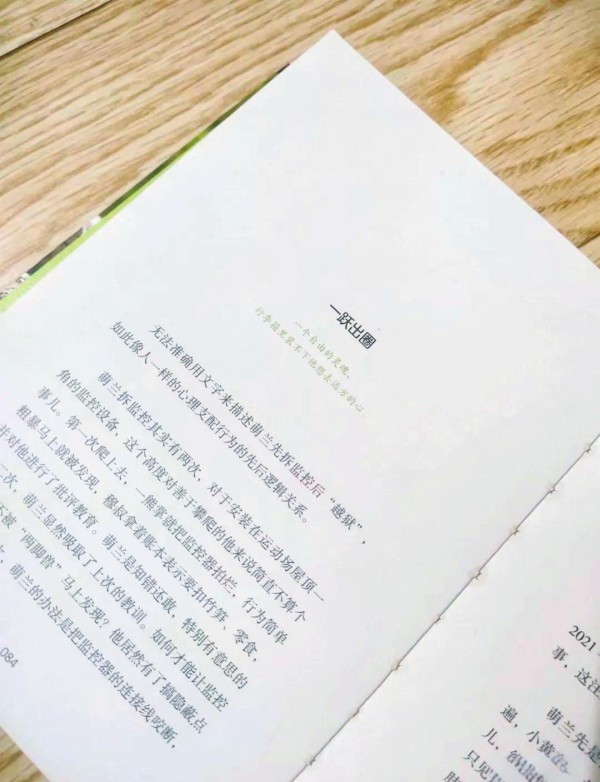 一跃出圈
一个自由的灵魂，
行李箱里装不下他想去远方的心。
无法准确用文字来描述萌兰先拆监控后“越狱”，
如此像人一样的心理支配行为的先后逻辑关系。
萌兰拆监控其实有两次，对于安装在运动场屋顶一
角的监控设备，这个高度对善于攀爬的他来说简直不算个
事儿。第一次爬上去，一熊掌就把监控器拍烂，行为简单
粗暴马上就被发现，穆叔拿着账本表示要扣竹笋、零食，
并对他进行了批评教育。萌兰是知错还敢，特别有意思的
一次，萌兰显然吸取了上次的教训。如何才能让监控
不被“两脚兽”马上发现？他居然有了搞隐蔽点
，萌兰的办法是把监控器的连接线咬断，
084
2021
事，这注
萌兰先是
遍，小黄
儿，
只见